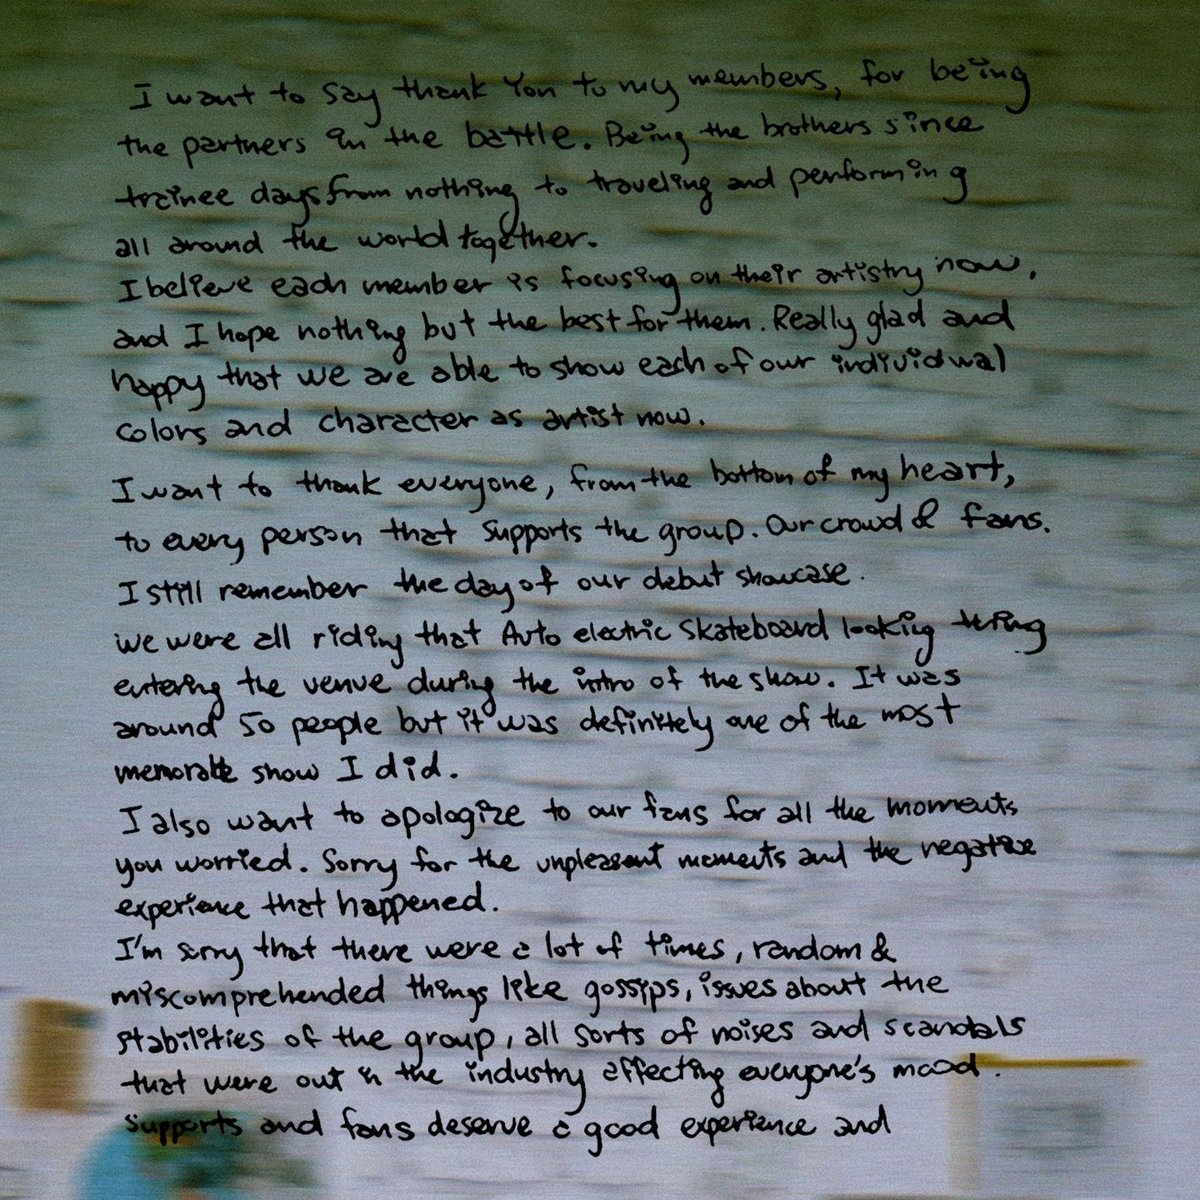 I want to say thank you to my members, for being
the partners in the battle. Being the brothers since
trainee days from nothing to traveling and performing
all around the world together.
I believe each member is focusing on their artistry now,
and I hope nothing but the best for them. Really glad and
happy that we are able to show each of our individual
colors and character as artist now.
I want to thank everyone, from the bottom of my heart,
to every person that supports the group. Our crowd & fans.
I still remember the day of our debut showcase.
we were all riding that Auto electric skateboard looking
entering the venue during the intro of the show. It was
around 50 people but it was definitely one of the most
memorable show I did.
I also want to apologize to our fans for all the moments
you worried. Sorry for the unpleasant moments and the negative
experience that happened.
I'm sorry that there were a lot of times, random &
miscomprehended things like gossips, issues about the
stabilities of the group, all sorts of noises and scandals
that were out in the industry affecting everyone's mood.
Supports and fans deserve a good experience and